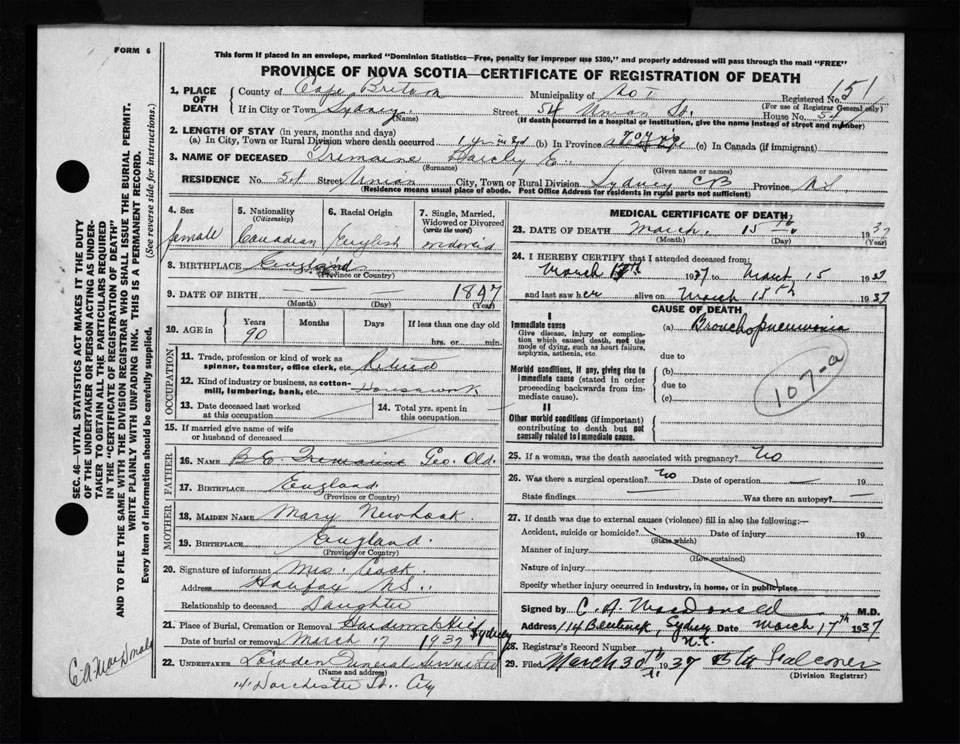 FORM 6
This form if placed in an envelope, marked "Dominion Statistics—Free, penalty for improper use $300," and properly addressed will pass through the mail "FREE"
PROVINCE OF NOVA SCOTIA—CERTIFICATE OF REGISTRATION OF DEATH
1. PLACE OF DEATH
County of Cape Breton Municipality of No 1 Registered No. 151
(For use of Registrar General only)
If in City or Town Sydney Street 54 Union St. House No. 54
(Name) (If death occurred in a hospital or institution, give the name instead of street and number)
2. LENGTH OF STAY (in years, months and days)
(a) In City, Town or Rural Division where death occurred (b) In Province (c) In Canada (if immigrant)
3. NAME OF DECEASED Tremaine E.
(Surname) (Given name or names)
RESIDENCE No. 54 Street Union City, Town or Rural Division Sydney CB Province NS
(Residence means usual place of abode. Post Office Address for residents in rural parts not sufficient)
4. Sex female
5. Nationality (Citizenship) Canadian
6. Racial Origin English
7. Single, Married, Widowed or Divorced (write the word)
8. BIRTHPLACE England
(Province or County)
9. DATE OF BIRTH — — 1847
(Month) (Day) (Year)
10. AGE in Years Months Days If less than one day old
90 hrs. or min.
OCCUPATION
11. Trade, profession or kind of work as spinner, teamster, office clerk, etc. Retired
12. Kind of industry or business, as cotton-mill, lumbering, bank, etc. Housework
13. Date deceased last worked at this occupation —
14. Total yrs. spent in this occupation —
15. If married give name of wife or husband of deceased —
FATHER
16. NAME B.E. Tremaine Geo. Old.
17. BIRTHPLACE England
(Province or Country)
MOTHER
18. MAIDEN NAME Mary Newhook
19. BIRTHPLACE England.
(Province or Country)
20. Signature of informant Mrs. Cook
Address Halifax NS.
Relationship to deceased Daughter
21. Place of Burial, Cremation or Removal Hardwick Hill Sydney
Date of burial or removal March 17 1937
22. UNDERTAKER Lowden Funeral
(Name and address)
14 Dorchester St. City
MEDICAL CERTIFICATE OF DEATH
23. DATE OF DEATH March, 15th, 1937
(Month) (Day) (Year)
24. I HEREBY CERTIFY that I attended deceased from:
March 1937 to March 15 1937
and last saw her alive on March 15th 1937
CAUSE OF DEATH
I
Immediate cause
Give disease, injury or complication which caused death, not the mode of dying, such as heart failure, asphyxia, asthenia, etc.
(a) Bronchopneumonia
due to
Morbid conditions, if any, giving rise to immediate cause (stated in order proceeding backwards from immediate cause).
(b)
due to
(c)
107-a
II
Other morbid conditions (if important) contributing to death but not causally related to immediate cause.
25. If a woman, was the death associated with pregnancy? No
26. Was there a surgical operation? No Date of operation — 19
State findings — Was there an autopsy? —
27. If death was due to external causes (violence) fill in also the following:—
Accident, suicide or homicide? Date of injury 19
(State which)
Manner of injury
(How sustained)
Nature of injury
Specify whether injury occurred in industry, in home, or in public place
Signed by C. A. MacDonald M.D.
Address 114 Bentinck, Sydney Date March 17th 1937
N.S.
28. Registrar's Record Number
29. Filed March 30th 1937 Falconer
(Division Registrar)
SEC. 46—VITAL STATISTICS ACT MAKES IT THE DUTY
OF THE UNDERTAKER OR PERSON ACTING AS UNDERTAKER TO OBTAIN ALL THE PARTICULARS REQUIRED
IN THE "CERTIFICATE OF REGISTRATION OF DEATH"
AND TO FILE THE SAME WITH THE DIVISION REGISTRAR WHO SHALL ISSUE THE BURIAL PERMIT.
WRITE PLAINLY WITH UNFADING INK. THIS IS A PERMANENT RECORD.
Every item of information should be carefully supplied. (See reverse side for instructions.)
C.A. MacDonald